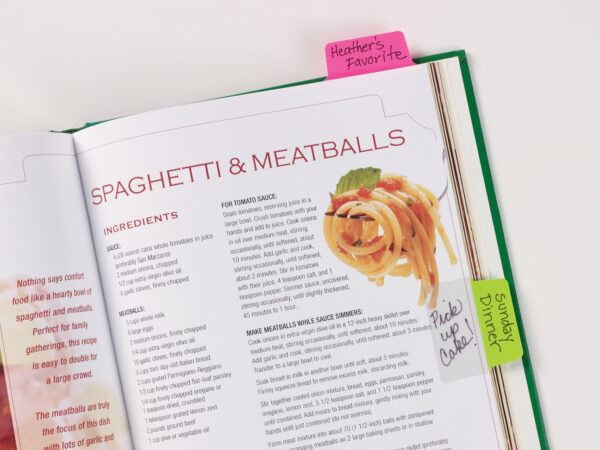 Heather's
Favorite
SPAGHETTI & MEATBALLS
INGREDIENTS
SAUCE:
6 (28-ounce) cans whole tomatoes in juice
(preferably San Marzano)
2 medium onions, chopped
1/2 cup extra-virgin olive oil
6 garlic cloves, finely chopped
MEATBALLS:
3 cups whole milk
6 large eggs
2 medium onions, finely chopped
1/4 cup extra-virgin olive oil
10 garlic cloves, finely chopped
3 cups torn day-old Italian bread
2 cups grated Parmigiano-Reggiano
1/3 cup finely chopped flat-leaf parsley
1/4 cup finely chopped oregano or
1 teaspoon dried, crumbled
1 tablespoon grated lemon zest
2 pounds ground beef
1 cup olive or vegetable oil
FOR TOMATO SAUCE:
Drain tomatoes, reserving juice in a
large bowl. Crush tomatoes with your
hands and add to juice. Cook onions
in oil over medium heat, stirring
occasionally, until softened, about
10 minutes. Add garlic and cook,
stirring occasionally, until softened,
about 2 minutes. Stir in tomatoes
with their juice, 4 teaspoon salt, and 1
teaspoon pepper. Simmer sauce, uncovered,
stirring occasionally, until slightly thickened,
45 minutes to 1 hour.
MAKE MEATBALLS WHILE SAUCE SIMMERS:
Cook onions in extra-virgin olive oil in a 12-inch heavy skillet over
medium heat, stirring occasionally, until softened, about 10 minutes.
Add garlic and cook, stirring occasionally, until softened, about 3 minutes.
Transfer to a large bowl to cool.
Soak bread in milk in another bowl until soft, about 5 minutes.
Firmly squeeze bread to remove excess milk, discarding milk.
Stir together cooled onion mixture, bread, eggs, parmesan, parsley,
oregano, lemon zest, 5 1/2 teaspoon salt, and 1 1/2 teaspoon pepper
until combined. Add meats to bread mixture, gently mixing with your
hands until just combined (do not overmix).
Form meat mixture into about 70 (1 1/2-inch) balls with dampened
arranging meatballs on 2 large baking sheets or in shallow
skillet (preferably
Nothing says comfort
food like a hearty bowl of
spaghetti and meatballs.
Perfect for family
gatherings, this recipe
is easy to double for
a large crowd.
The meatballs are truly
the focus of this dish
with lots of garlic and
Pick
up
Cake!
Sunday
Dinner